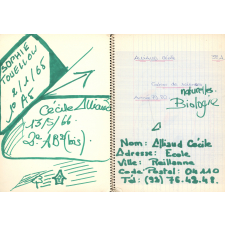 SOPHIE
TOUELLOU
2/1/65
1° A5
Cécile Alliaud
13/5/66
2° AB3 (bis)
naturelles
Biologie
Nom: Alliaud Cécile
Adresse: Ecole
Ville: Reillanne
Code Postal: 04110
Tél: (92) 76.43.48.